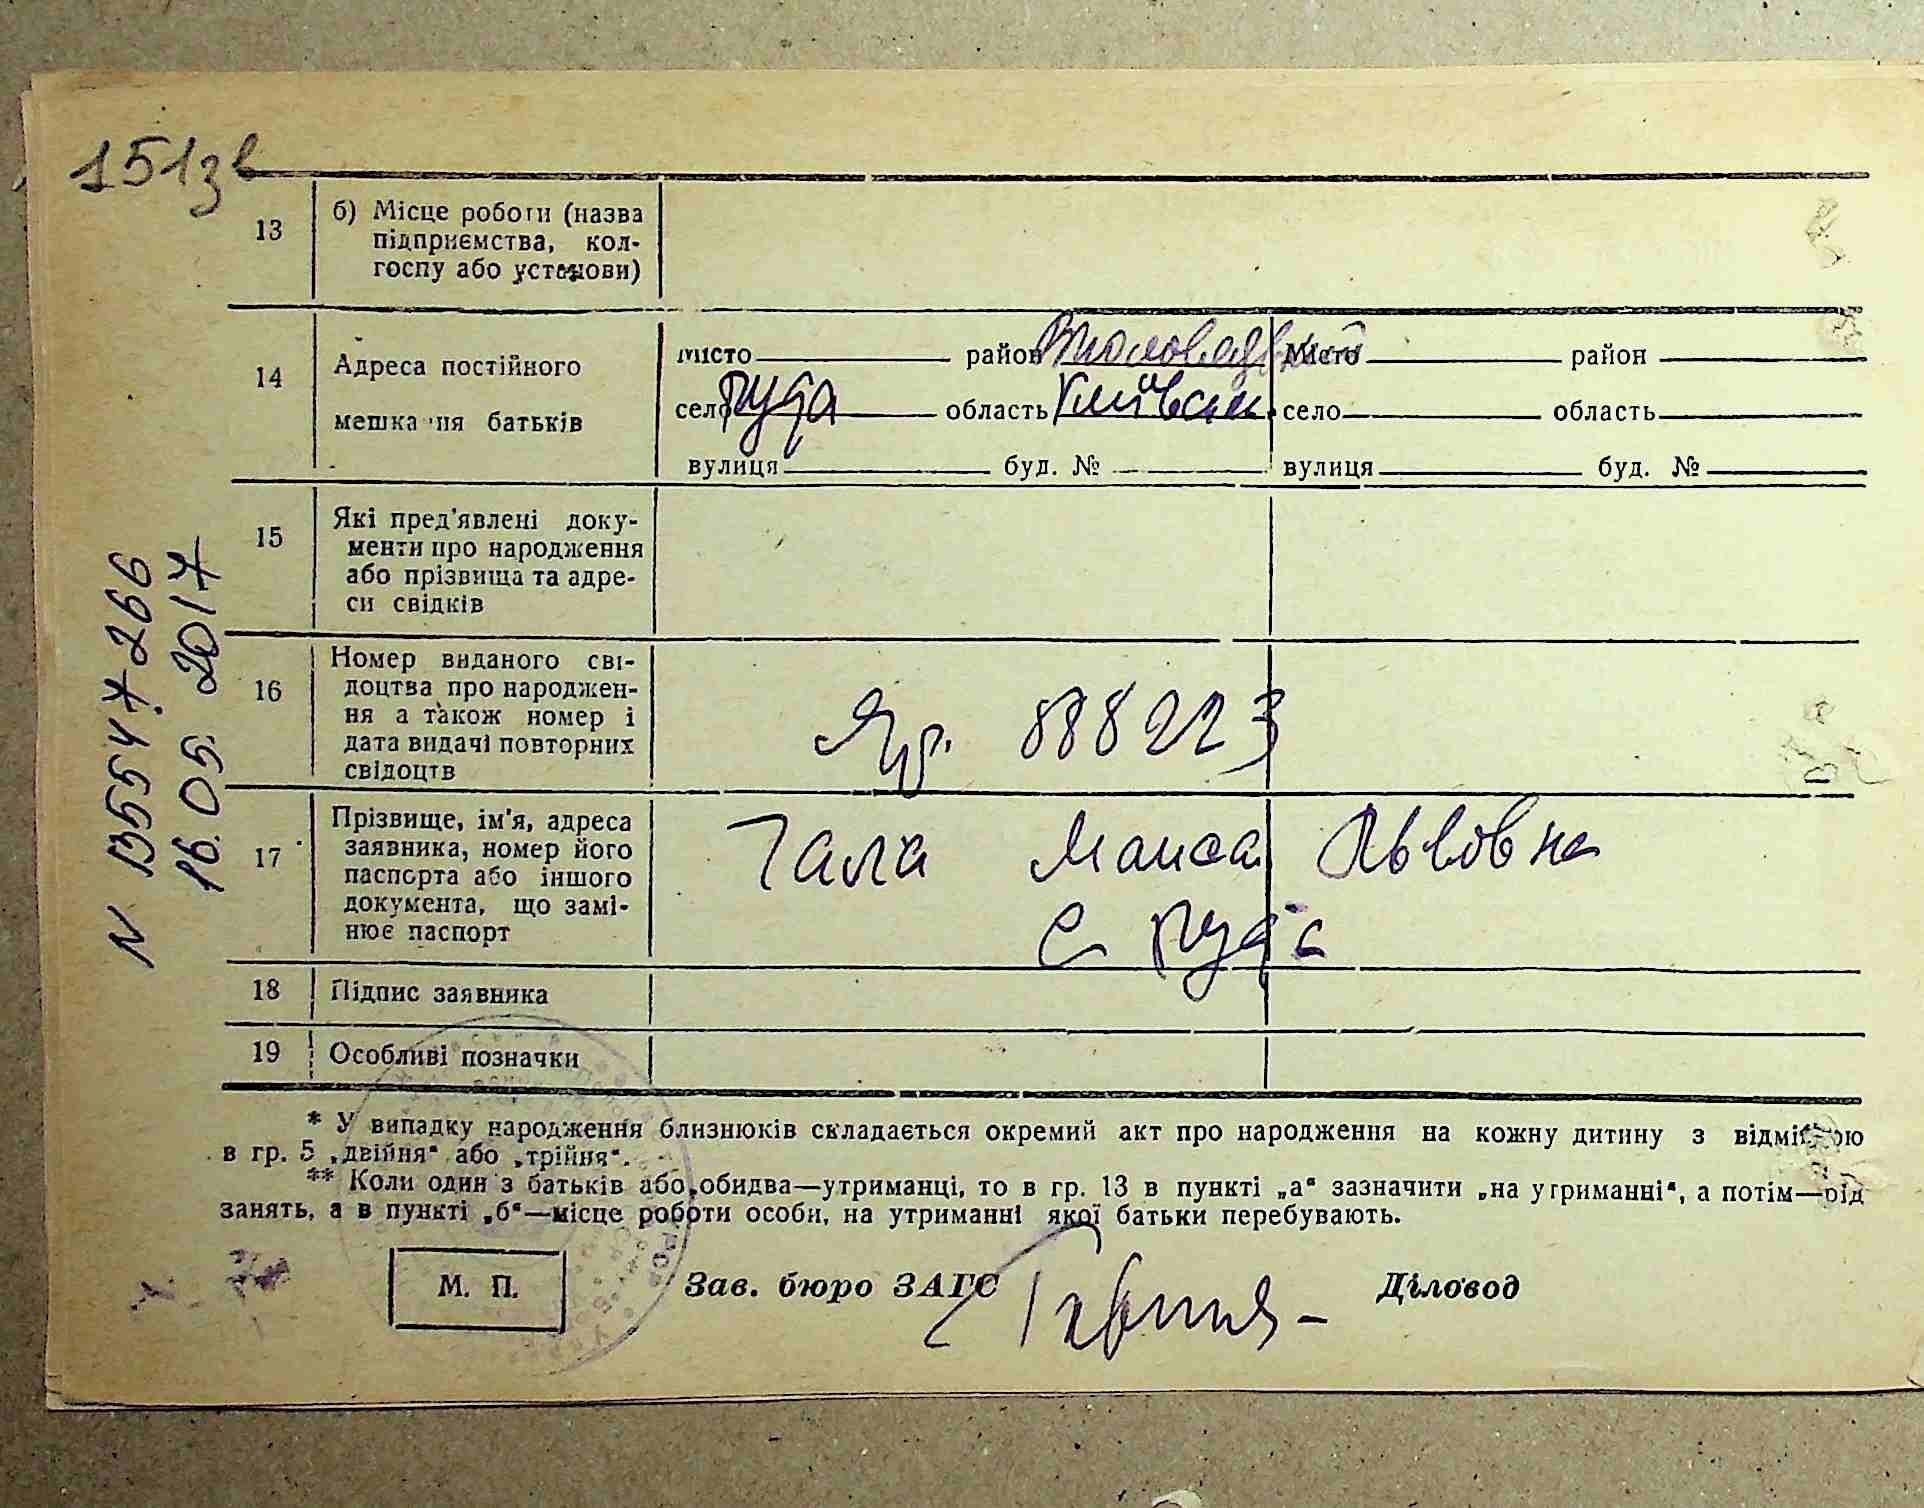 151зв
13 б) Місце роботи (назва
підприємства, кол-
госпу або установи)
14 Адреса постійного
мешкання батьків
місто район місто район
село Руда область Київськ. село область
вулиця буд. № вулиця буд. №
15 Які пред'явлені доку-
менти про народження
або прізвища та адре-
си свідків
16 Номер виданого сві-
доцтва про народжен-
ня а також номер і
дата видачі повторних
свідоцтв
888223
17 Прізвище, ім'я, адреса
заявника, номер його
паспорта або іншого
документа, що замі-
нює паспорт
Гала Маиса Львовна
с Руда
18 Підпис заявника
19 Особливі позначки
* У випадку народження близнюків складається окремий акт про народження на кожну дитину з відміткою
в гр. 5 „двійня“ або „трійня“.
** Коли один з батьків або обидва—утриманці, то в гр. 13 в пункті „а“ зазначити „на утриманні“, а потім—рід
занять, а в пункті „б“—місце роботи особи, на утриманні якої батьки перебувають.
М. П. Зав. бюро ЗАГС Діловод
N 135547266
16.05.2017